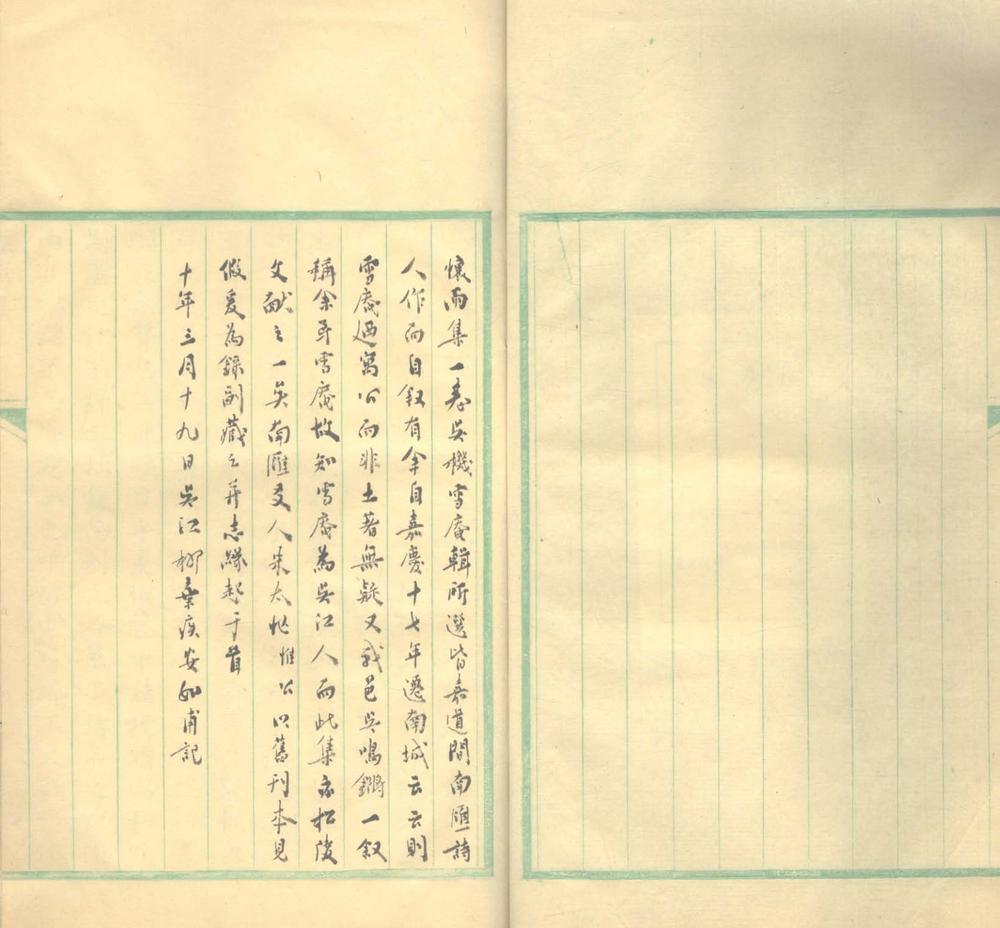 懷雨集一卷吳機雪庵輯所選皆嘉道間南匯詩
人作而自叙有余自嘉慶十七年遷南城云云則
雪庵廼寓公而非土著無疑又我邑吳鳴鏘一叙
稱余哥雪庵故知雪庵為吳江人而此集亦松陵
文献之一矣南匯友人朱太忙惟公以舊刊本見
假爰為錄副藏之并志緣起于首
十年三月十九日吳江柳棄疾安如甫記